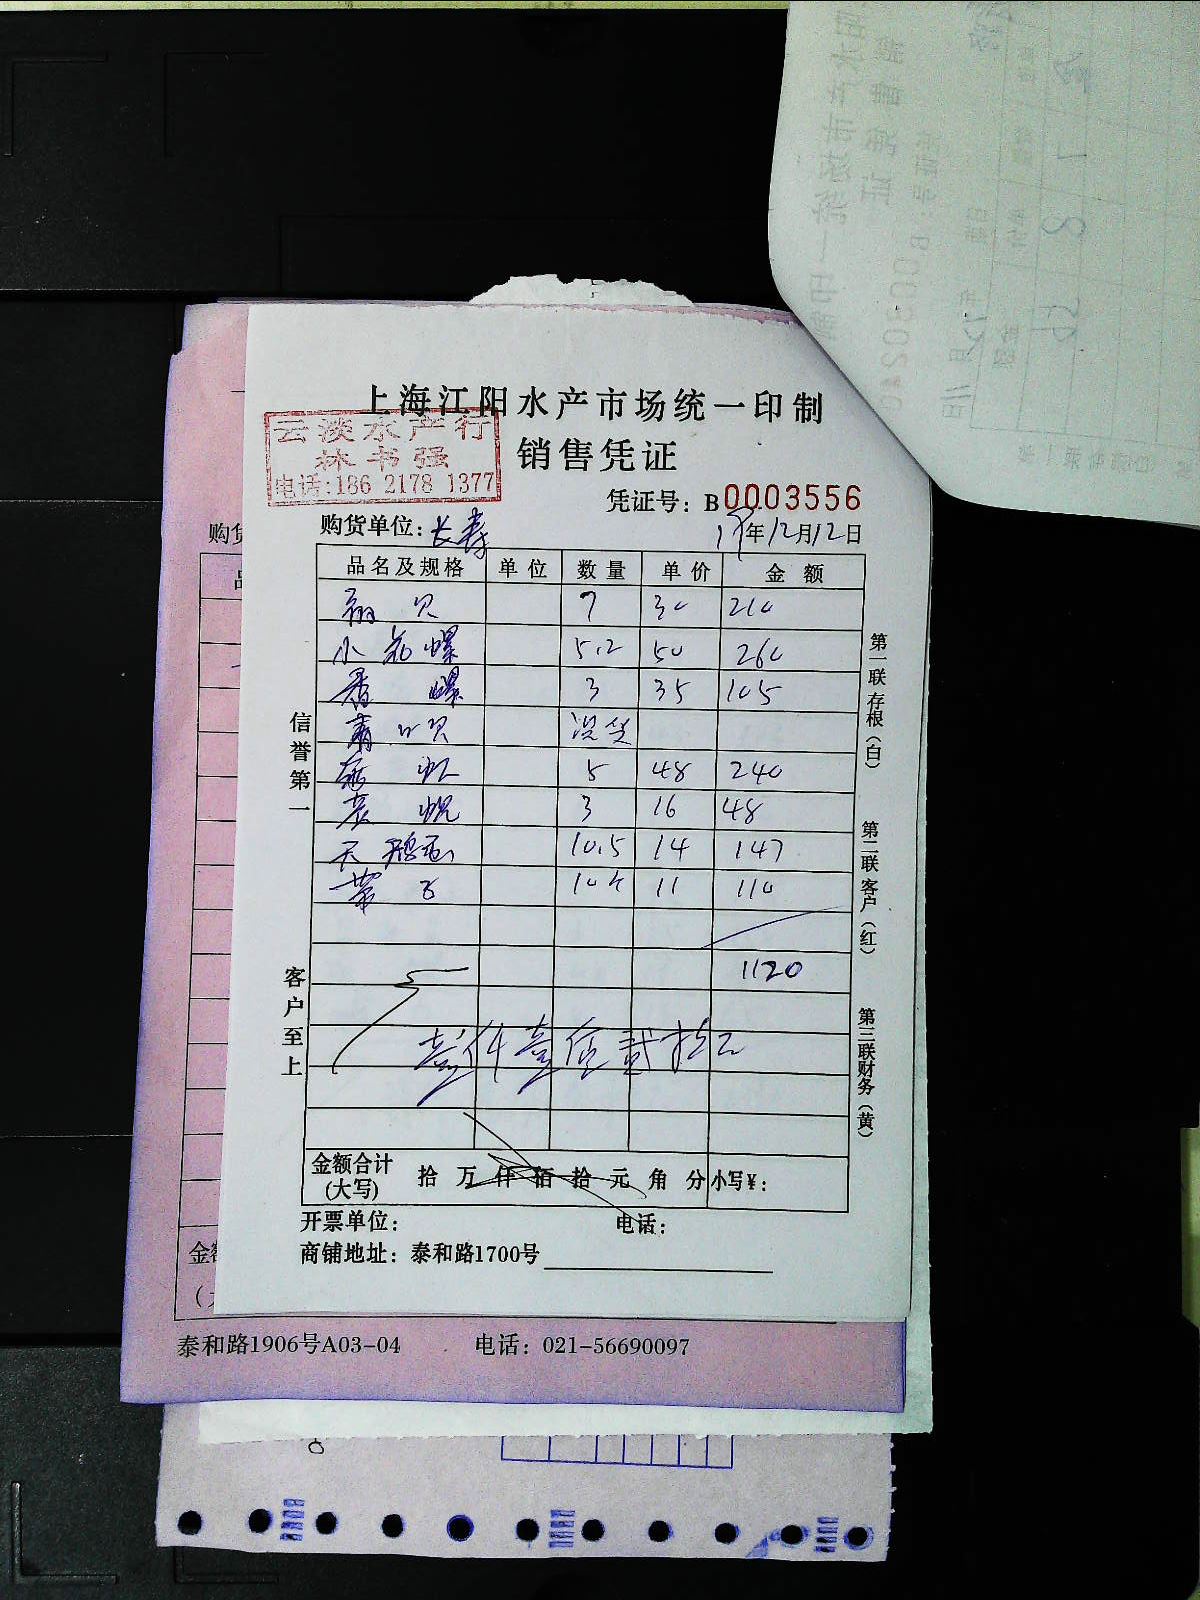 上海江阳水产市场统一印制
云淡水产行
林书强
电话:186 2178 1377
销售凭证
凭证号: B 0003556
购货单位: 长寿
19年12月12日
品名及规格 单位 数量 单价 金额
7 30 210
小花螺 5.2 50 260
香螺 3 35 105
青口贝 没货
5 48 240
3 16 48
天鹅蛋 10.5 14 147
带子 10个 11 110
1120
壹仟壹佰贰拾元
信誉第一
客户至上
第一联存根(白)
第二联客户(红)
第三联财务(黄)
金额合计(大写) 拾 万 仟 佰 拾 元 角 分 小写¥:
开票单位: 电话:
商铺地址: 泰和路1700号
购货
金额
泰和路1906号A03-04 电话: 021-56690097